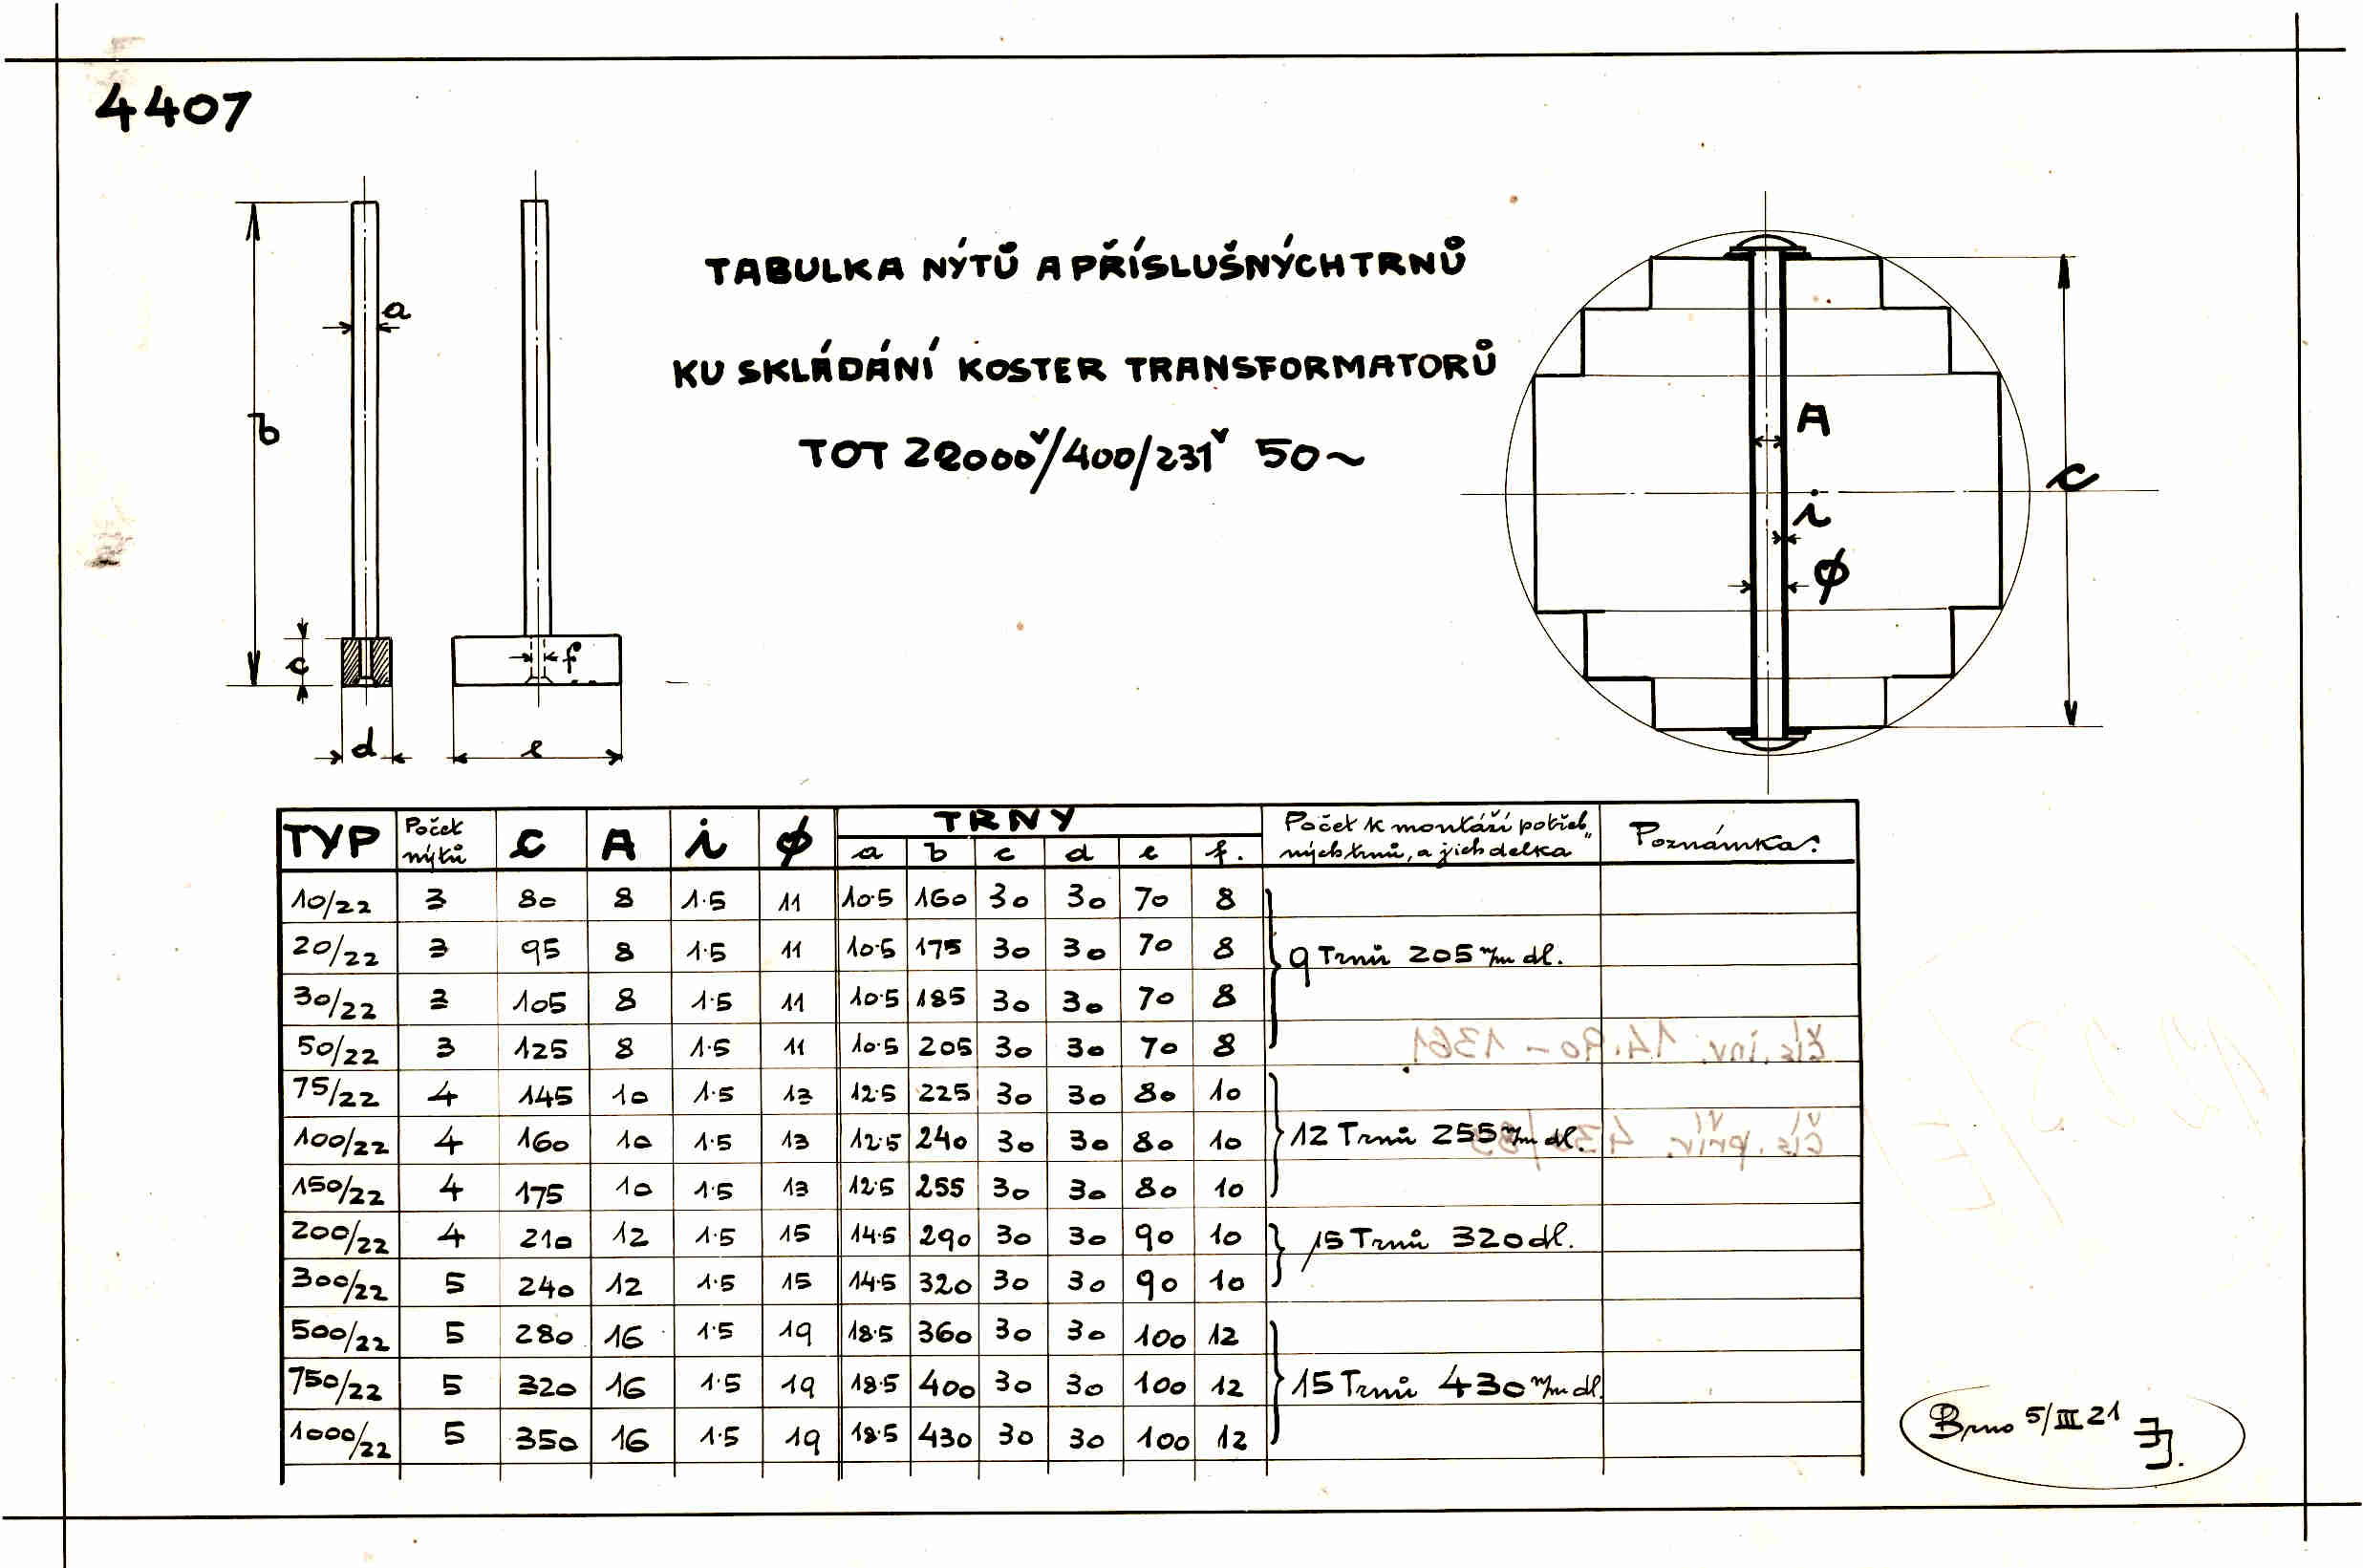 4407
a
b
c
d
e
f
TABULKA NÝTŮ A PŘÍSLUŠNÝCH TRNŮ
KU SKLÁDÁNÍ KOSTER TRANSFORMATORŮ
TOT 22000ᵛ/400/231ᵛ 50~
A
c
i
ϕ
TYP Počet nýtů c A i ϕ TRNY Počet k montáži potřeb„ ných trnů, a jich delka Poznámka:
a b c d e f.
10/22 3 80 8 1·5 11 10·5 160 30 30 70 8
20/22 3 95 8 1·5 11 10·5 175 30 30 70 8 9 Trnů 205 m/m dl.
30/22 3 105 8 1·5 11 10·5 185 30 30 70 8
50/22 3 125 8 1·5 11 10·5 205 30 30 70 8
čís. inv. 14.90 – 1361
75/22 4 145 10 1·5 13 12·5 225 30 30 80 10
100/22 4 160 10 1·5 13 12·5 240 30 30 80 10 12 Trnů 255 m/m dl.
čís. přír.
150/22 4 175 10 1·5 13 12·5 255 30 30 80 10
200/22 4 210 12 1·5 15 14·5 290 30 30 90 10 15 Trnů 320 dl.
300/22 5 240 12 1·5 15 14·5 320 30 30 90 10
500/22 5 280 16 1·5 19 18·5 360 30 30 100 12
750/22 5 320 16 1·5 19 18·5 400 30 30 100 12 15 Trnů 430 m/m dl.
1000/22 5 350 16 1·5 19 18·5 430 30 30 100 12
Brno 5/III 21